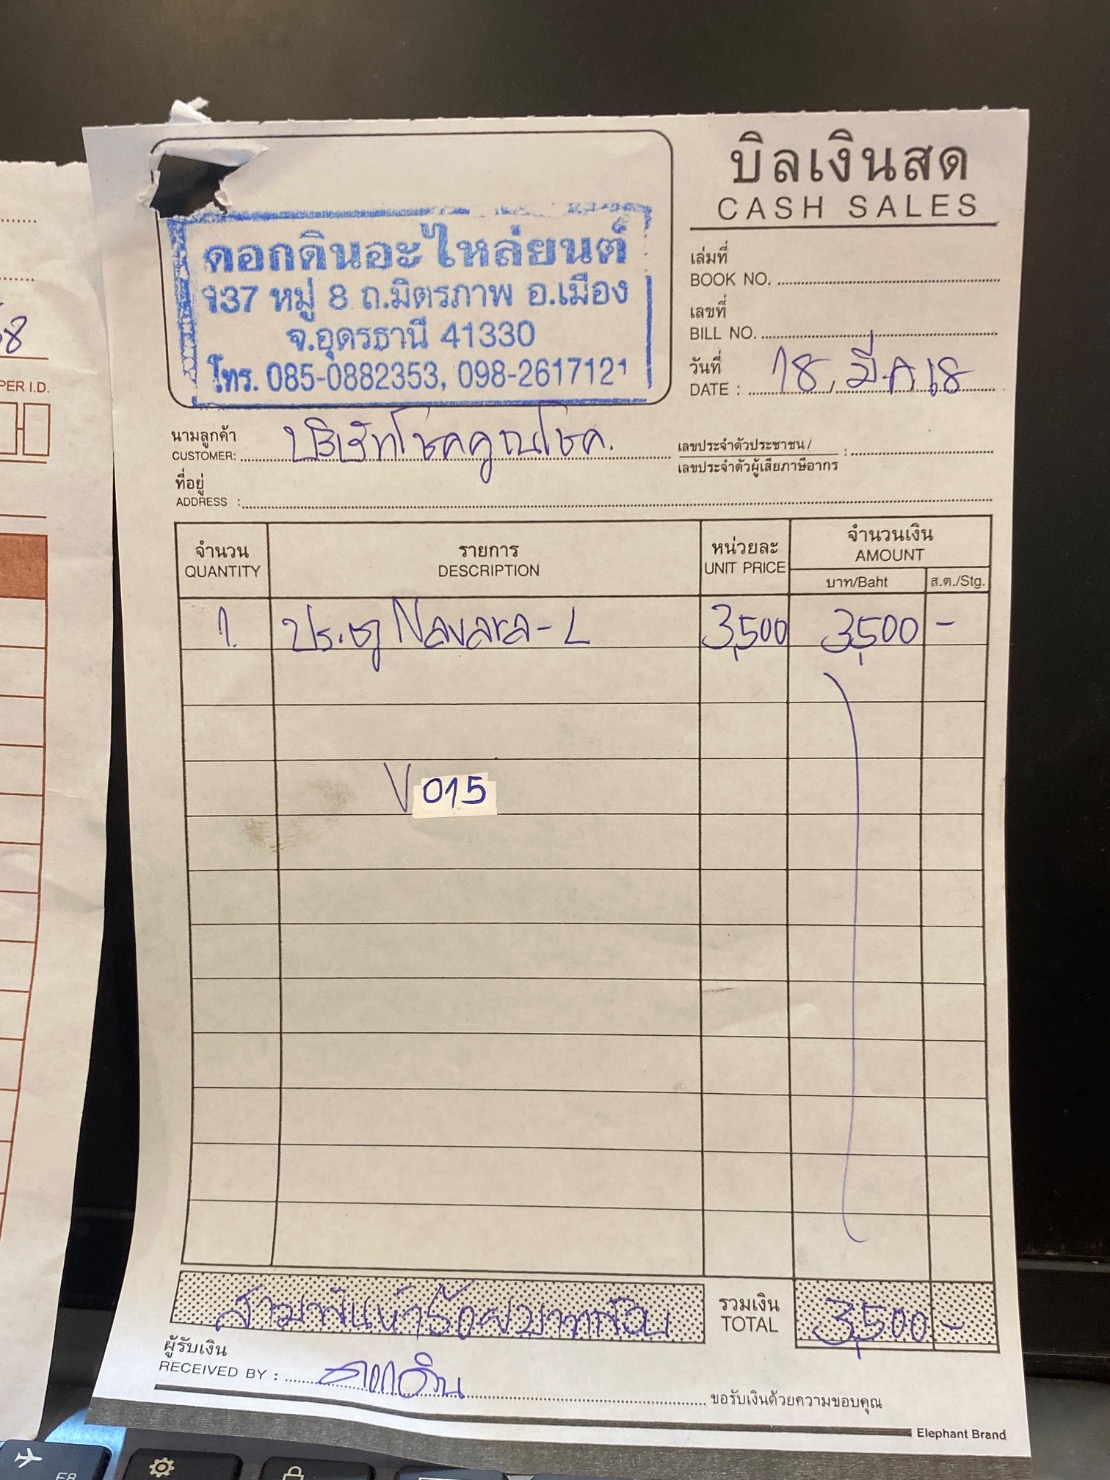 บิลเงินสด
CASH SALES
ดอกดินอะไหล่ยนต์
137 หมู่ 8 ถ.มิตรภาพ อ.เมือง
จ.อุดรธานี 41330
โทร. 085-0882353, 098-2617121
เล่มที่
BOOK NO.
เลขที่
BILL NO.
วันที่
DATE : 18 มี.ค 68
นามลูกค้า
CUSTOMER: บริษัทโชคคูณโชค.
เลขประจำตัวประชาชน/
เลขประจำตัวผู้เสียภาษีอากร :
ที่อยู่
ADDRESS :
จำนวน รายการ หน่วยละ จำนวนเงิน
QUANTITY DESCRIPTION UNIT PRICE AMOUNT
บาท/Baht ส.ต./Stg.
1. ประตู Navara-L 3,500 3,500 -
V 015
สามพันห้าร้อยบาทถ้วน
รวมเงิน
TOTAL 3,500 -
ผู้รับเงิน
RECEIVED BY : ดอกดิน
ขอรับเงินด้วยความขอบคุณ
Elephant Brand
8
PER I.D.
F8